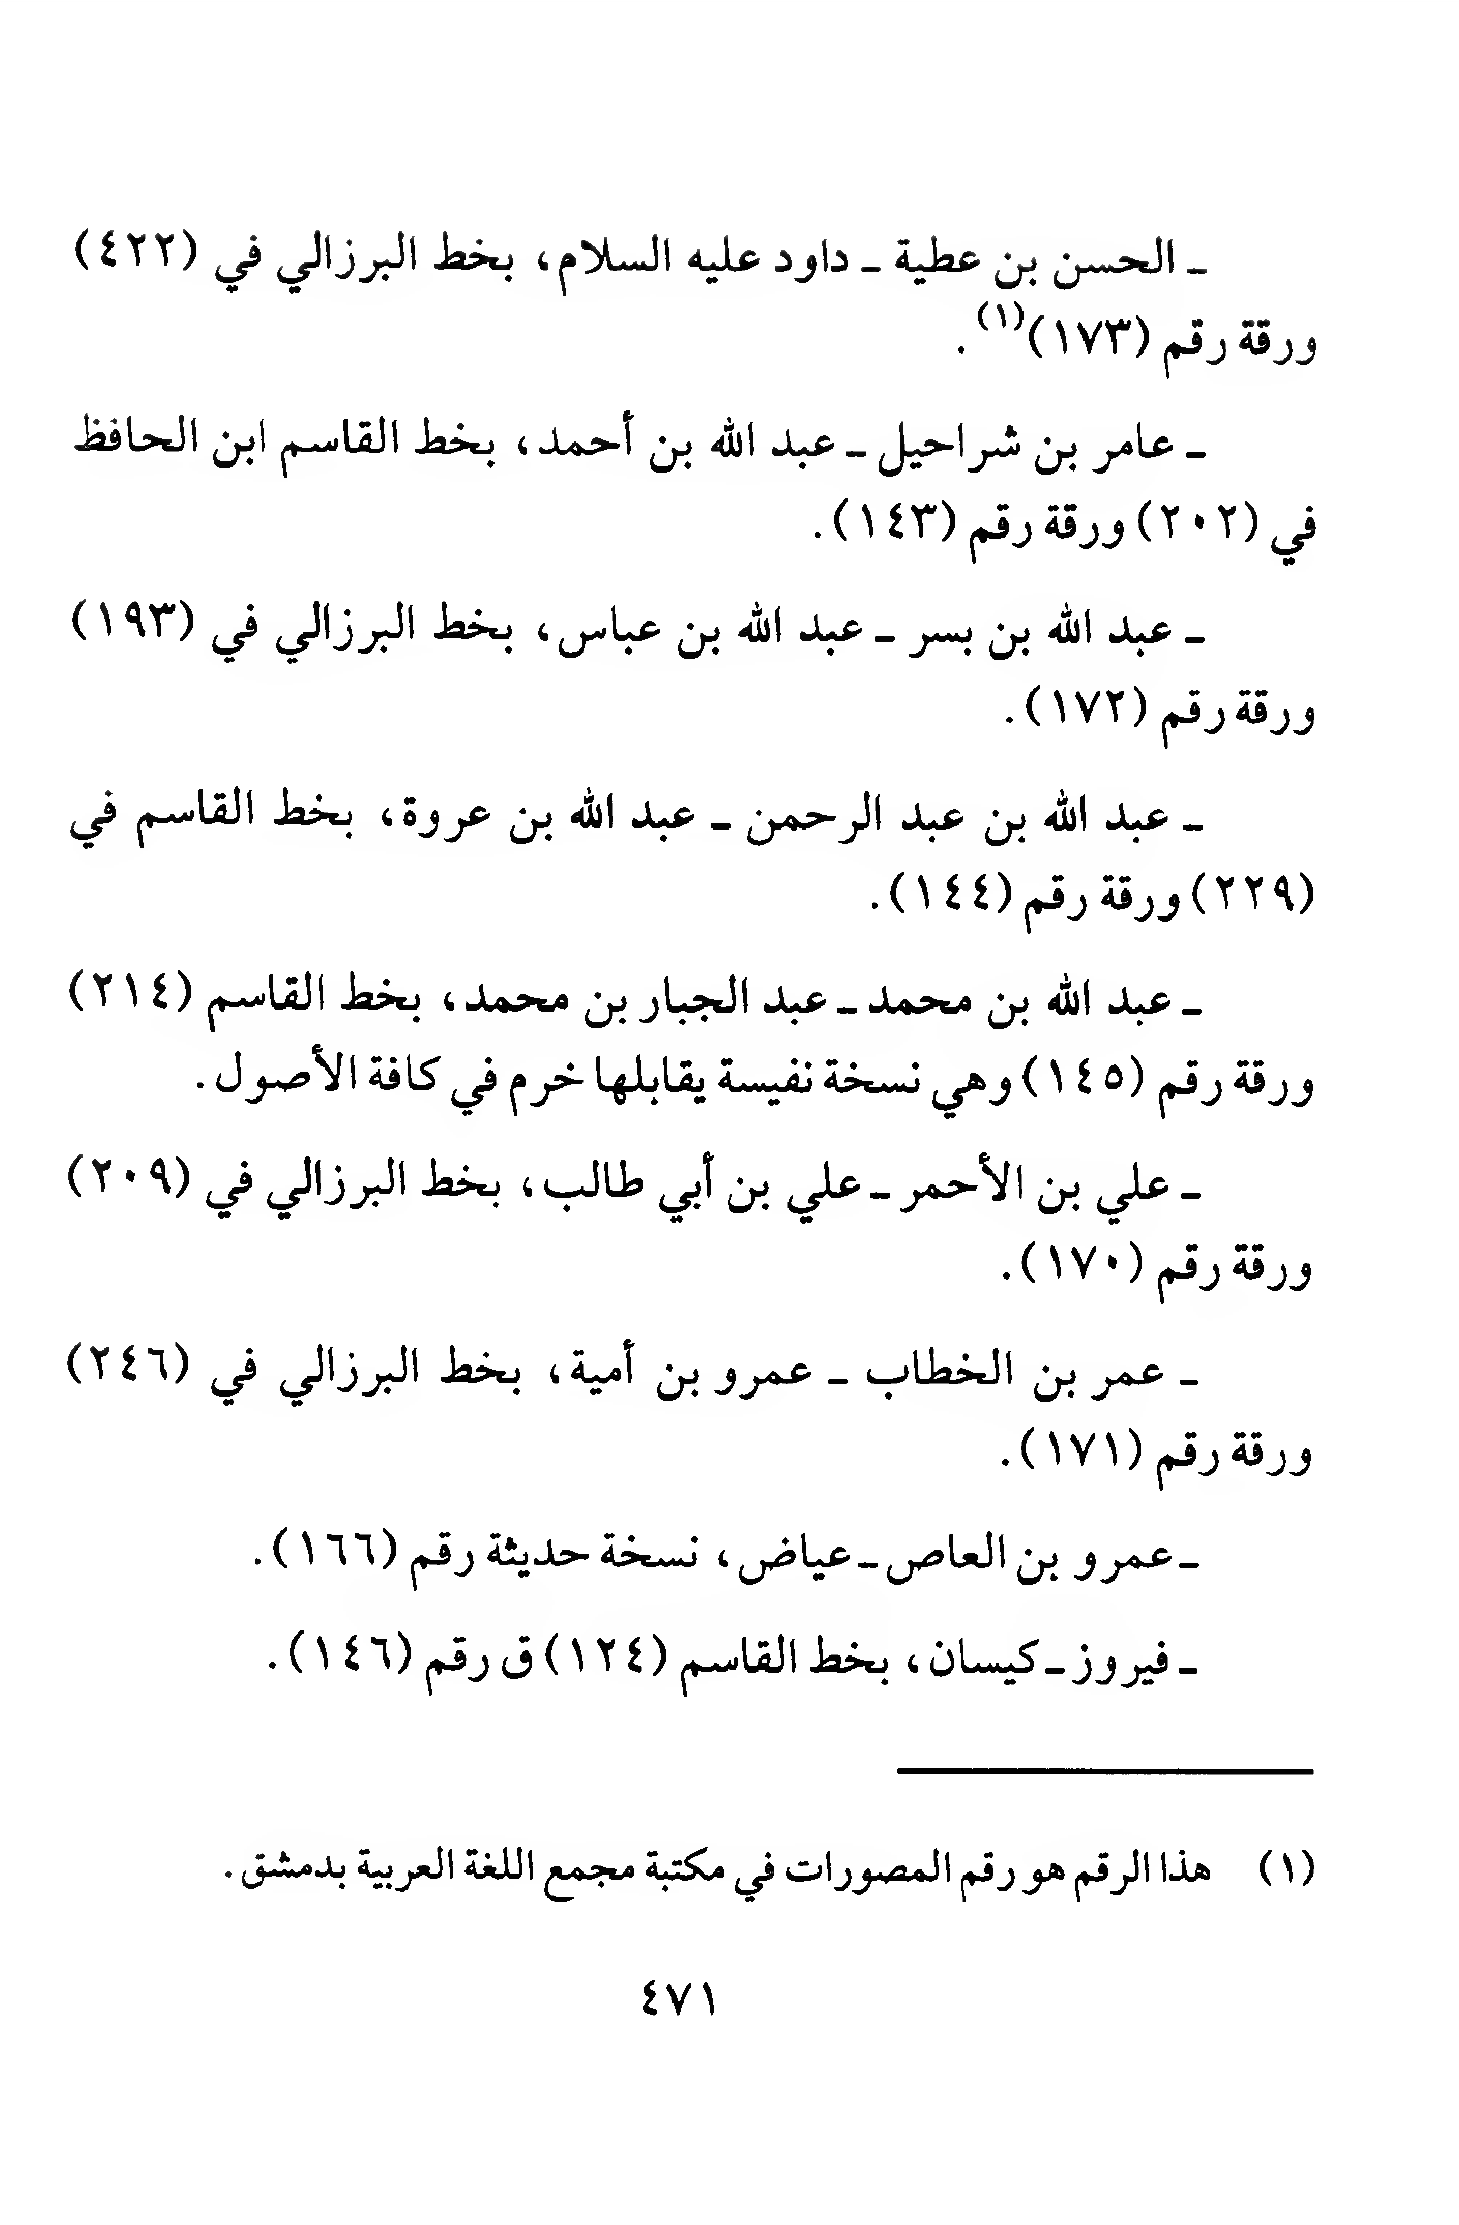 ـ الحسن بن عطية ـ داود عليه السلام، بخط البرزالي في (٤٢٢)
ورقة رقم (١٧٣)(١).
ـ عامر بن شراحيل ـ عبد الله بن أحمد، بخط القاسم ابن الحافظ
في (٢٠٢) ورقة رقم (١٤٣).
ـ عبد الله بن بسر ـ عبد الله بن عباس، بخط البرزالي في (١٩٣)
ورقة رقم (١٧٢).
ـ عبد الله بن عبد الرحمن ـ عبد الله بن عروة، بخط القاسم في
(٢٢٩) ورقة رقم (١٤٤).
ـ عبد الله بن محمد ـ عبد الجبار بن محمد، بخط القاسم (٢١٤)
ورقة رقم (١٤٥) وهي نسخة نفيسة يقابلها خرم في كافة الأصول.
ـ علي بن الأحمر ـ علي بن أبي طالب، بخط البرزالي في (٢٠٩)
ورقة رقم (١٧٠).
ـ عمر بن الخطاب ـ عمرو بن أمية، بخط البرزالي في (٢٤٦)
ورقة رقم (١٧١).
ـ عمرو بن العاص ـ عياض، نسخة حديثة رقم (١٦٦).
ـ فيروز ـ كيسان، بخط القاسم (١٢٤) ق رقم (١٤٦).
(١) هذا الرقم هو رقم المصورات في مكتبة مجمع اللغة العربية بدمشق.
٤٧١